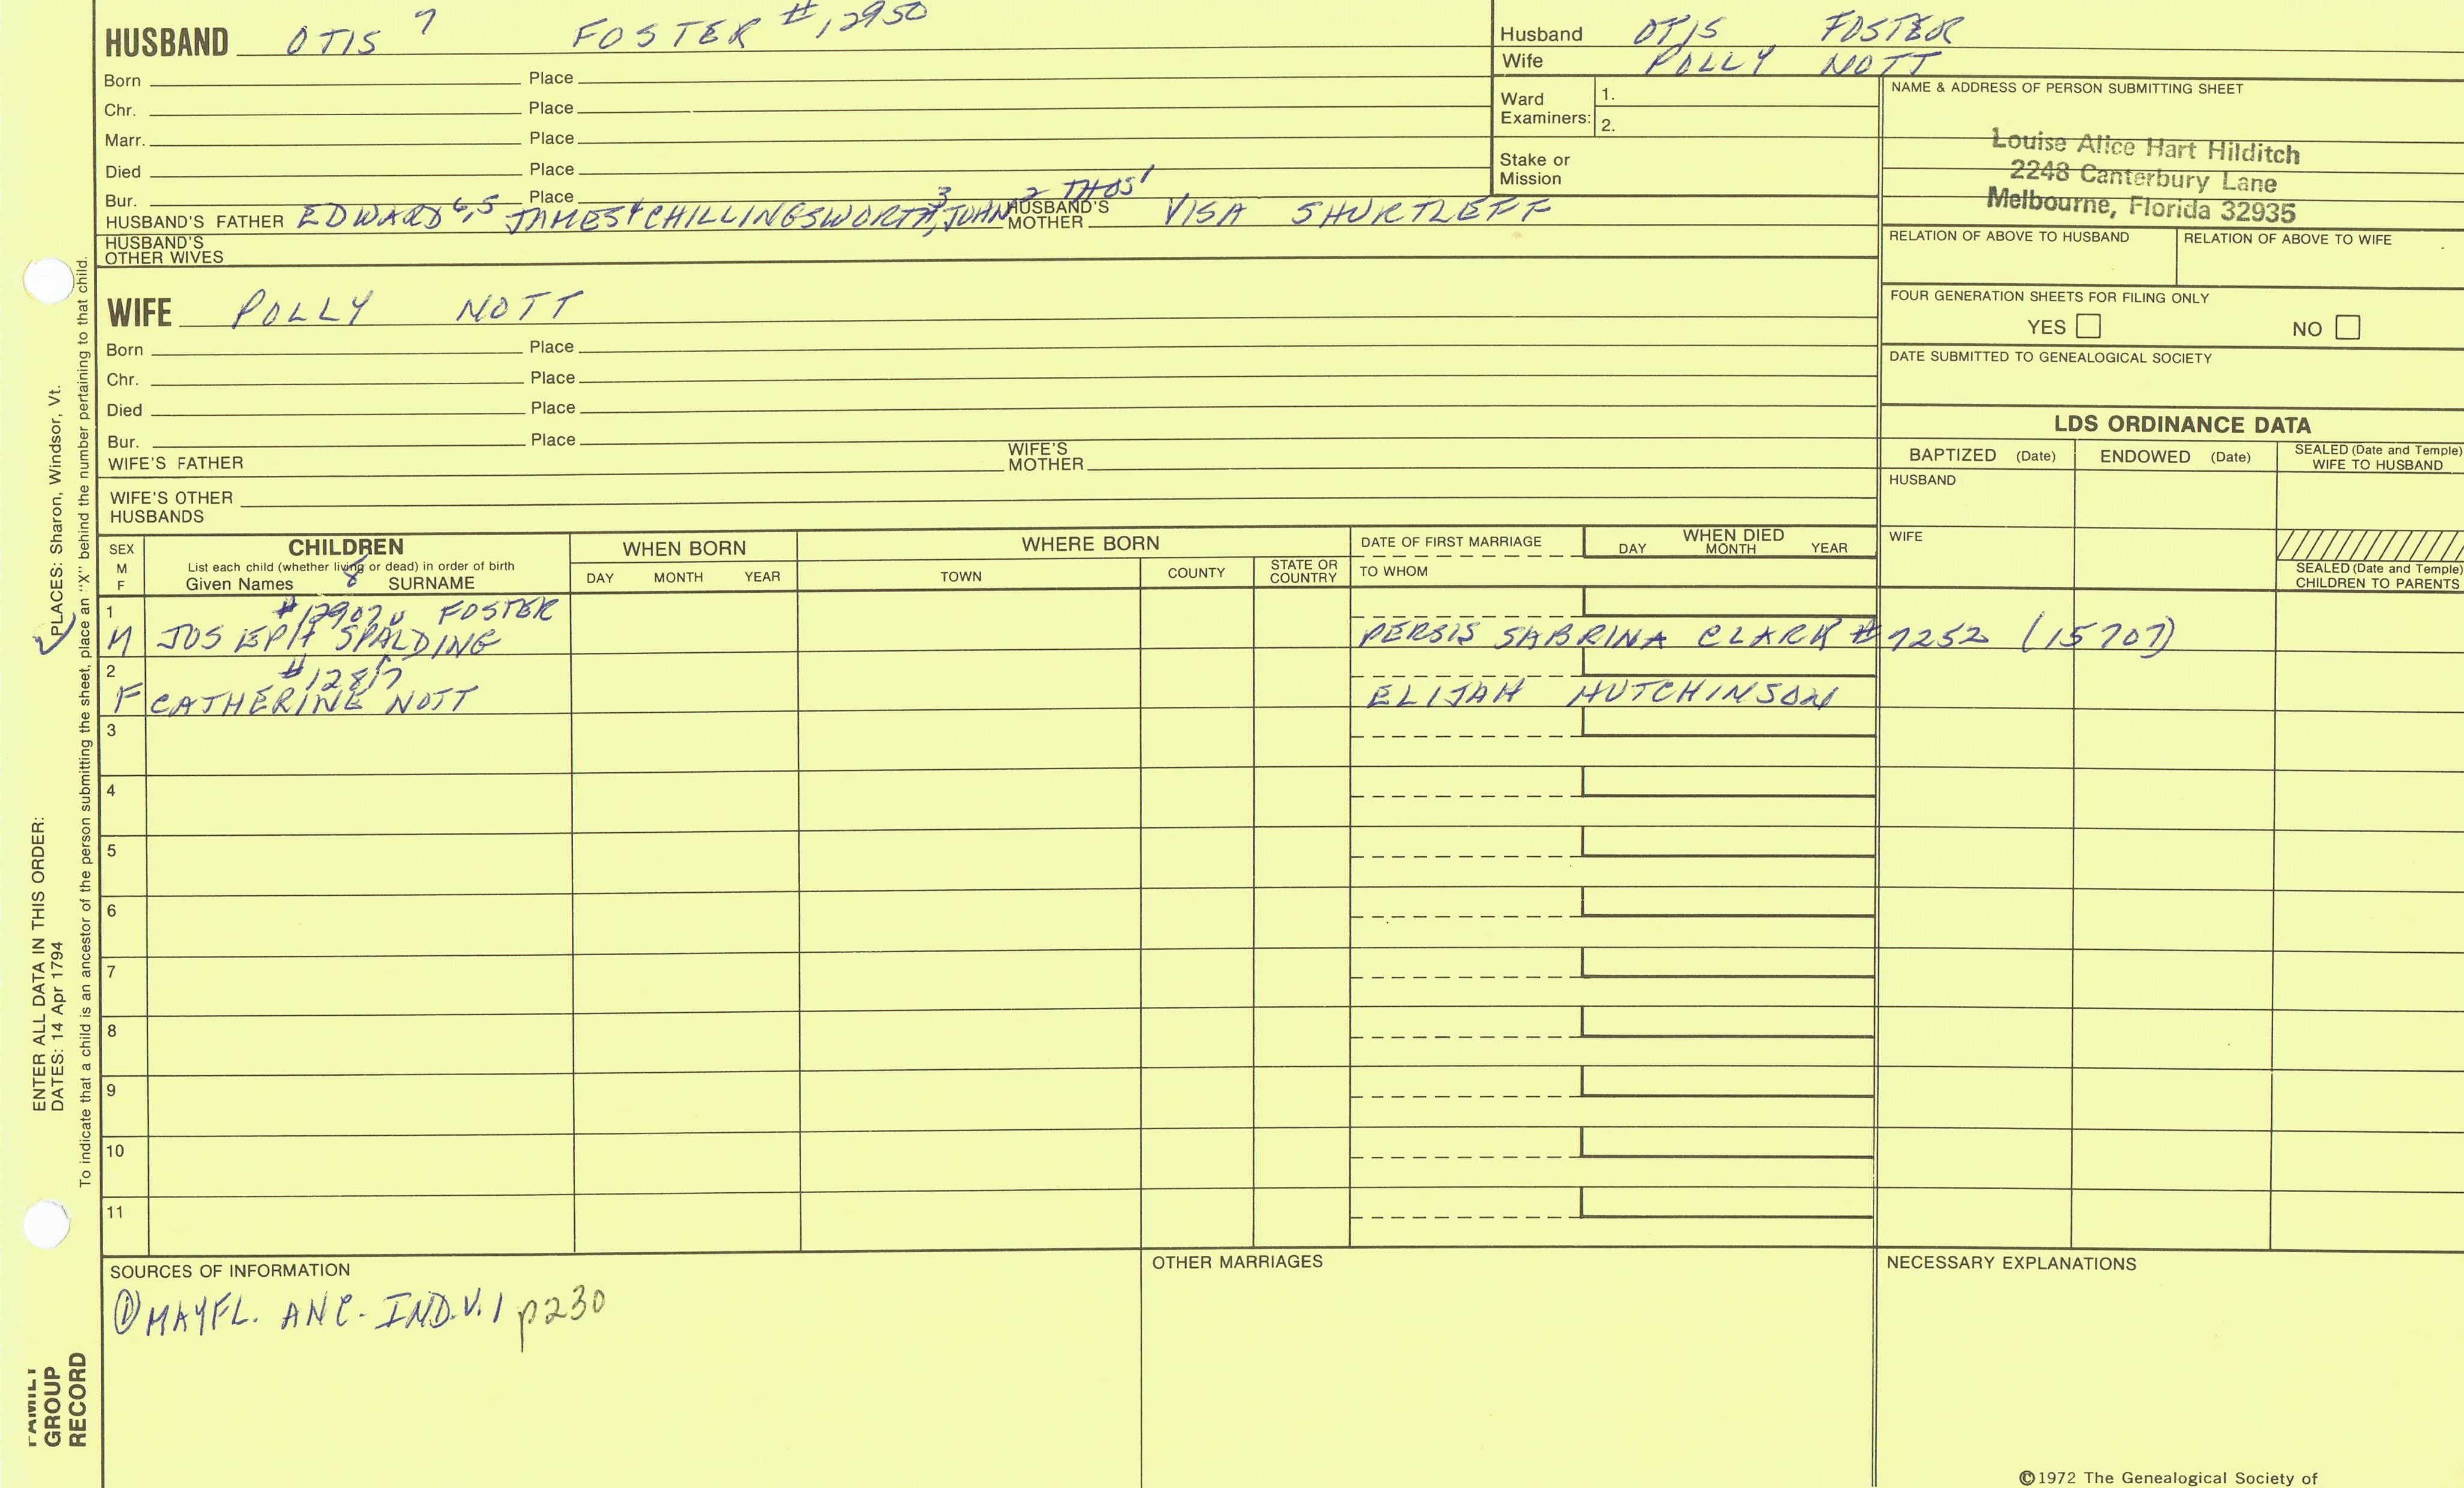 HUSBAND OTIS 7 FOSTER #12950
Born Place
Chr. Place
Marr. Place
Died Place
Bur. Place
HUSBAND'S FATHER EDWARD 6,5 JAMES 4 CHILLINGSWORTH 3, JOHN 2 THOS 1 HUSBAND'S MOTHER VISA SHURTLEFF
HUSBAND'S OTHER WIVES
Husband OTIS FOSTER
Wife POLLY NOTT
Ward Examiners: 1.
2.
Stake or Mission
NAME & ADDRESS OF PERSON SUBMITTING SHEET
Louise Alice Hart Hilditch
2248 Canterbury Lane
Melbourne, Florida 32935
RELATION OF ABOVE TO HUSBAND RELATION OF ABOVE TO WIFE
FOUR GENERATION SHEETS FOR FILING ONLY
YES NO
DATE SUBMITTED TO GENEALOGICAL SOCIETY
WIFE POLLY NOTT
Born Place
Chr. Place
Died Place
Bur. Place
WIFE'S FATHER WIFE'S MOTHER
WIFE'S OTHER HUSBANDS
LDS ORDINANCE DATA
BAPTIZED (Date) ENDOWED (Date) SEALED (Date and Temple) WIFE TO HUSBAND
HUSBAND
WIFE
SEALED (Date and Temple) CHILDREN TO PARENTS
SEX M F
CHILDREN
List each child (whether living or dead) in order of birth
Given Names 8 SURNAME
WHEN BORN
DAY MONTH YEAR
WHERE BORN
TOWN COUNTY STATE OR COUNTRY
DATE OF FIRST MARRIAGE
TO WHOM
WHEN DIED
DAY MONTH YEAR
1 FOSTER
M JOSEPH SPALDING PERSIS SABRINA CLARK #7252 (15707)
2 #12817
F CATHERINE NOTT ELIJAH HUTCHINSON
3
4
5
6
7
8
9
10
11
SOURCES OF INFORMATION
① MAYFL. ANC. IND. V. 1 p230
OTHER MARRIAGES
NECESSARY EXPLANATIONS
©1972 The Genealogical Society of
ENTER ALL DATA IN THIS ORDER:
DATES: 14 Apr 1794
PLACES: Sharon, Windsor, Vt.
To indicate that a child is an ancestor of the person submitting the sheet, place an "X" behind the number pertaining to that child.
FAMILY
GROUP
RECORD